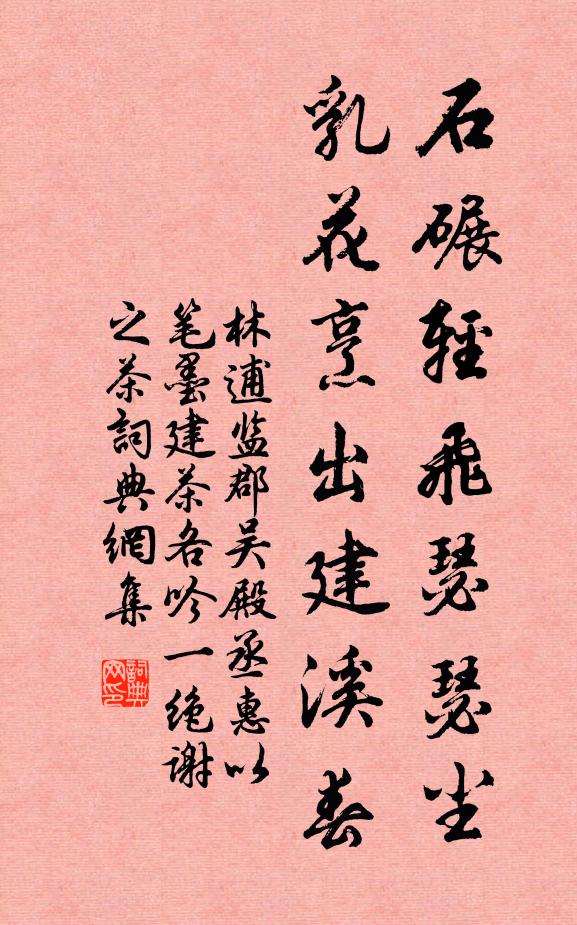 石碾輕飛瑟瑟尘
乳花烹出建溪春
林逋监郡吴殿丞惠以
笔墨建茶各吟一绝谢
之茶詞典網集
詞典網印